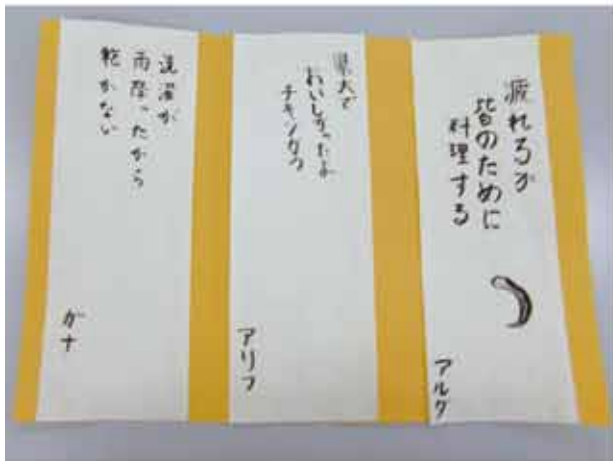 疲れるが
皆のために
料理する
アルタ
県大で
おいしかったよ
チキンカツ
アリフ
洗濯が
雨降ったから
乾かない
ガナ